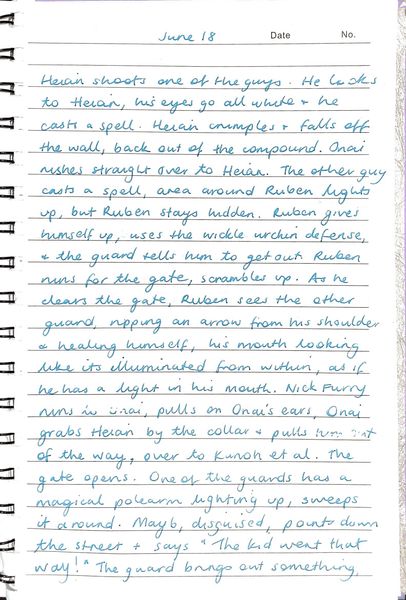 June 18 Date No.
Heian shoots one of the guys. He looks
to Heian, his eyes go all white & he
casts a spell. Heian crumples & falls off
the wall, back out of the compound. Onai
rushes straight over to Heian. The other guy
casts a spell, area around Ruben lights
up, but Ruben stays hidden. Ruben gives
himself up, uses the wickle urchin defense,
& the guard tells him to get out. Ruben
runs for the gate, scrambles up. As he
clears the gate, Ruben sees the other
guard, ripping an arrow from his shoulder
& healing himself, his mouth looking
like its illuminated from within, as if
he has a light in his mouth. Nick Furry
runs to Onai, pulls on Onai's ears, Onai
grabs Heian by the collar & pulls him out
of the way, over to Kunoh et al. The
gate opens. One of the guards has a
magical polearm lighting up, sweeps
it around. Mayb, disguised, points down
the street & says "The kid went that
way!" The guard brings out something,